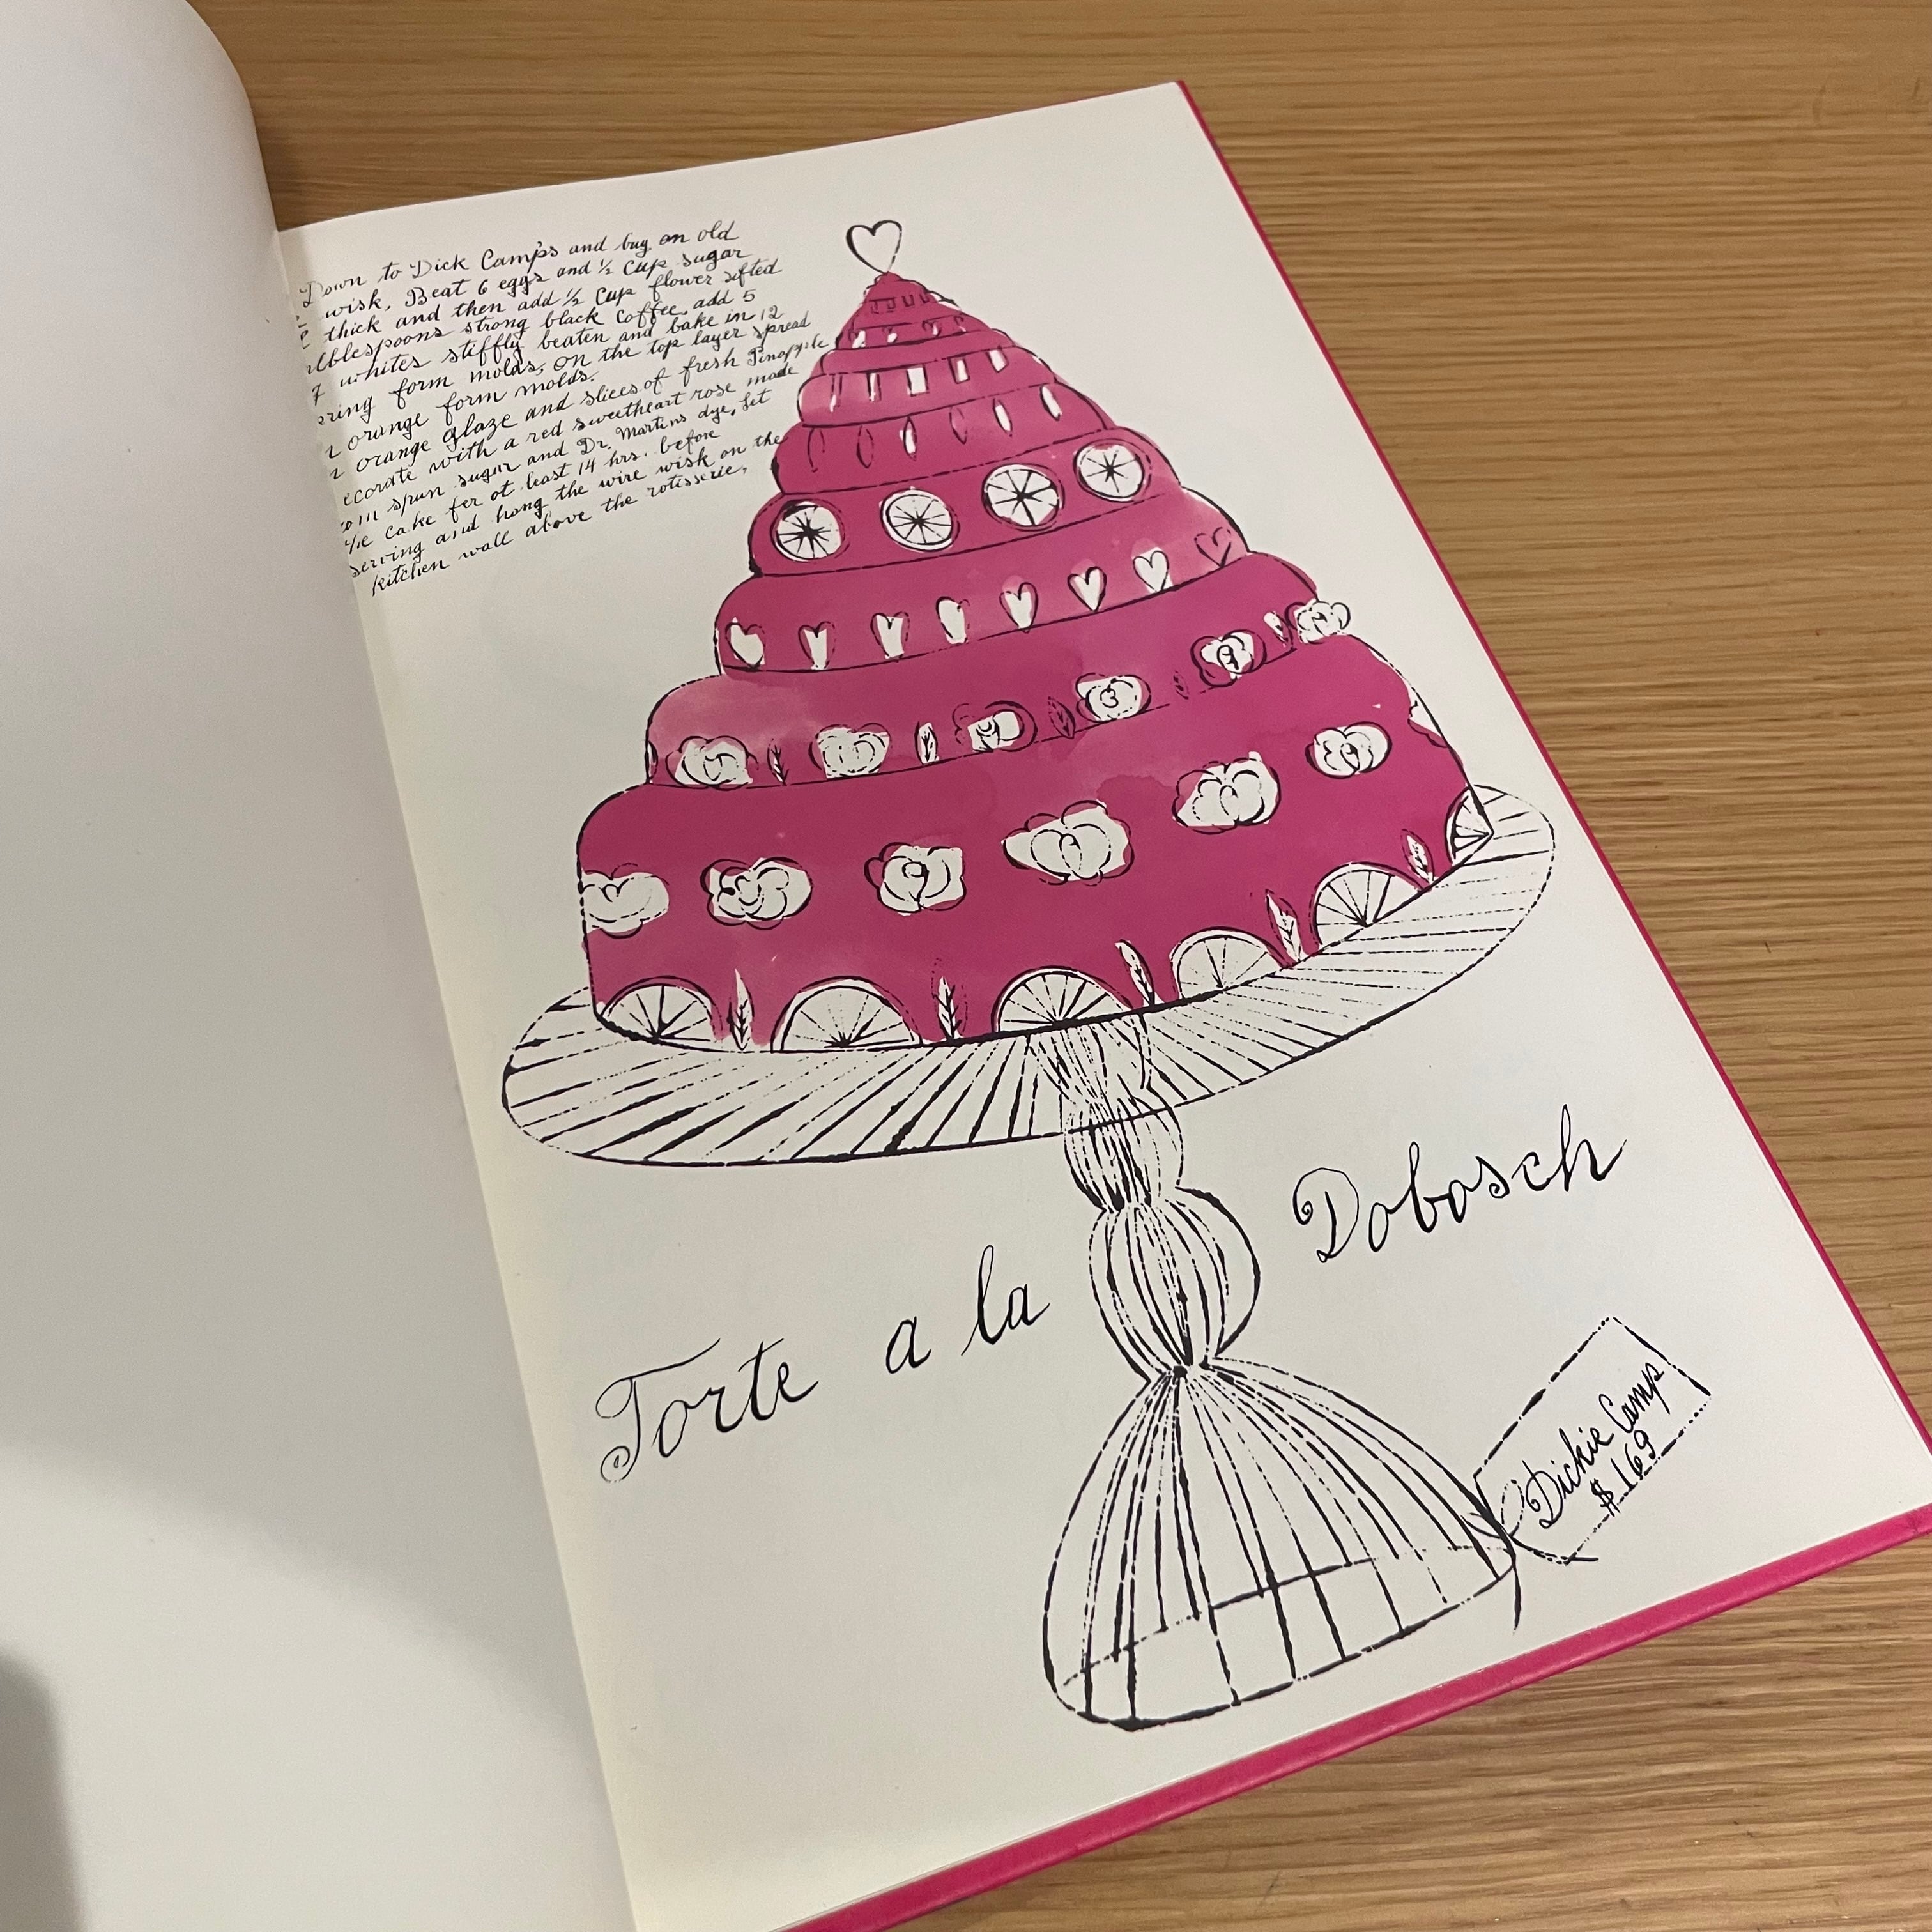 Down to Dick Camp's and buy an old
wisk. Beat 6 eggs and ½ cup sugar
thick and then add ½ cup flower sifted
tablespoons strong black coffee, add 5
whites stiffly beaten and bake in 12
spring form molds, on the top layer spread
orange form molds.
orange glaze and slices of fresh Pinapple
ecorate with a red sweetheart rose made
om spun sugar and Dr. Martins dye, Let
he cake fer at least 14 hrs. before
serving and hang the wire wisk on the
kitchen wall above the rotisserie.
Torte a la Dobosch
Dickie Camp
$ 169